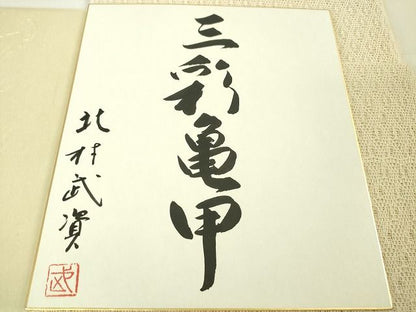 三彩亀甲
北村武資
武